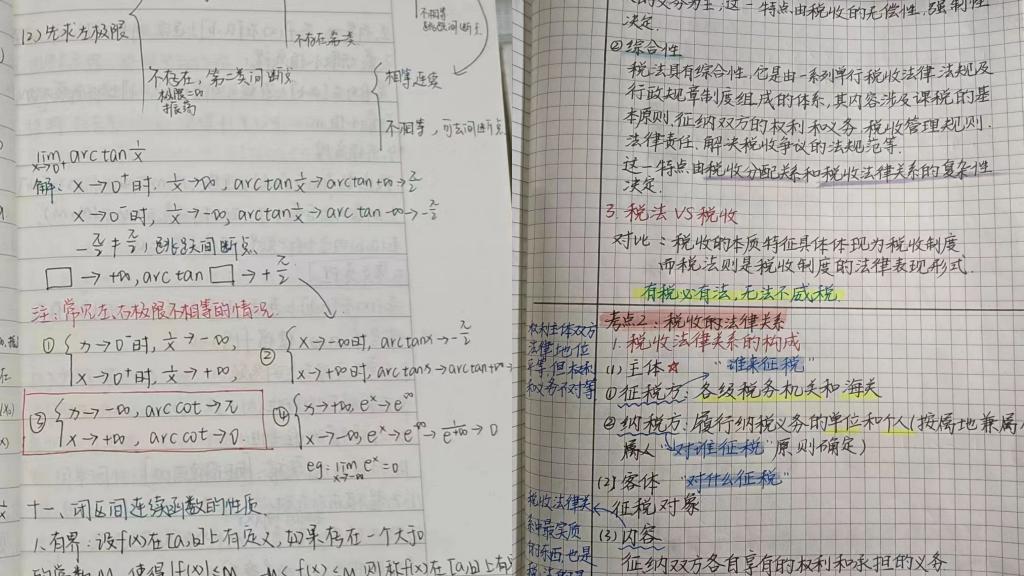 (2) 先求左极限
不存在,第二类间断点
极限=∞
振荡
不相等
跳跃间断点
相等连续
不相等,可去间断点
lim x→0 arctan 1/x
解: x→0⁺时, 1/x→∞, arctan 1/x→arctan+∞→π/2
x→0⁻时, 1/x→-∞, arctan 1/x→arctan-∞→-π/2
-π/2≠π/2, 跳跃间断点
□→+∞, arctan□→+π/2
注:常见左、右极限不相等的情况
① { x→0⁻时, 1/x→-∞,
x→0⁺时, 1/x→+∞,
② { x→-∞时, arctanx→-π/2
x→+∞时, arctanx→arctan+∞→
③ { x→-∞, arccot→π
x→+∞, arccot→0.
④ { x→+∞, eˣ→e^∞
x→-∞, eˣ→e^-∞→1/e^+∞→0
eg: lim x→-∞ eˣ=0
十一、闭区间连续函数的性质
1.有界:设f(x)在[a,b]上有定义,如果存在一个大于0
使得|f(x)|≤M, f(x)≤M 则称f(x)在[a,b]上有
的义务为主,这一特点由税收的无偿性,强制性
决定.
②综合性
税法具有综合性,它是由一系列单行税收法律法规及
行政规章制度组成的体系,其内容涉及课税的基
本原则,征纳双方的权利和义务,税收管理规则.
法律责任,解决税收争议的法规范等.
这一特点由税收分配关系和税收法律关系的复杂性
决定.
3. 税法VS税收
对比:税收的本质特征具体体现为税收制度
而税法则是税收制度的法律表现形式.
有税必有法,无法不成税
考点2:税收的法律关系
1. 税收法律关系的构成
权利主体双方
法律地位
平等,但权利
和义务不对等
(1)主体☆ "谁来征税"
①征税方:各级税务机关和海关
②纳税方:履行纳税义务的单位和个人(按属地兼属
属人 "对谁征税" 原则确定)
(2)客体 "对什么征税"
征税对象
税收法律关
系中最实质
的东西,也是
(3)内容
征纳双方各自享有的权利和承担的义务